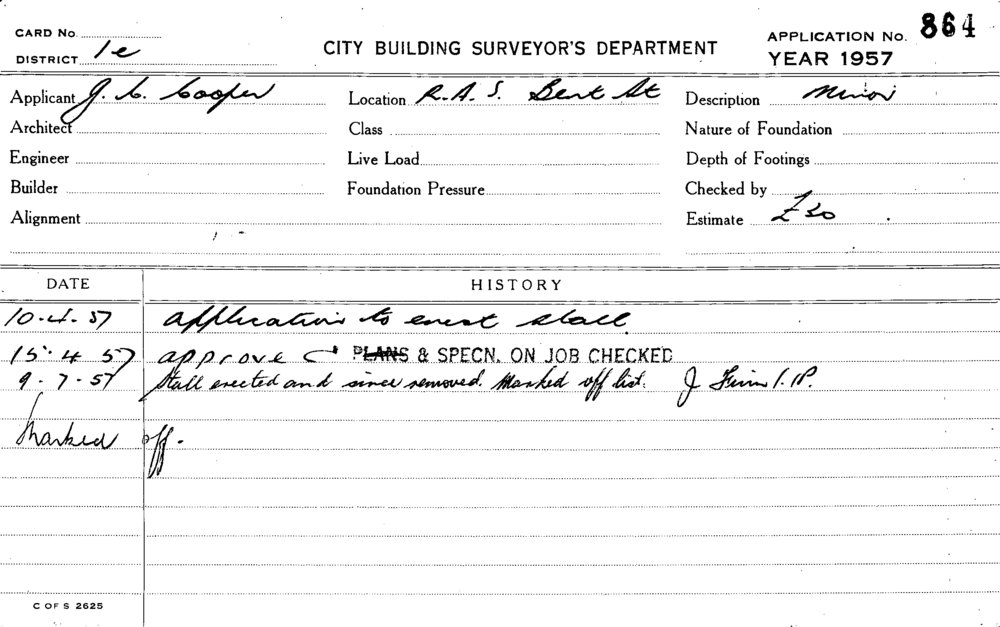 CARD No.
DISTRICT 1e
CITY BUILDING SURVEYOR'S DEPARTMENT
APPLICATION No. 864
YEAR 1957
Applicant J. C. Cooper
Location R.A.S. Bent St
Description Minor
Architect
Class
Nature of Foundation
Engineer
Live Load
Depth of Footings
Builder
Foundation Pressure
Checked by
Alignment
Estimate £30
DATE HISTORY
10.4.57 application to erect stall.
15.4 57 approve PLANS & SPECN. ON JOB CHECKED
9.7.57 Stall erected and since removed. Marked off list. J
Marked off.
C OF S 2625